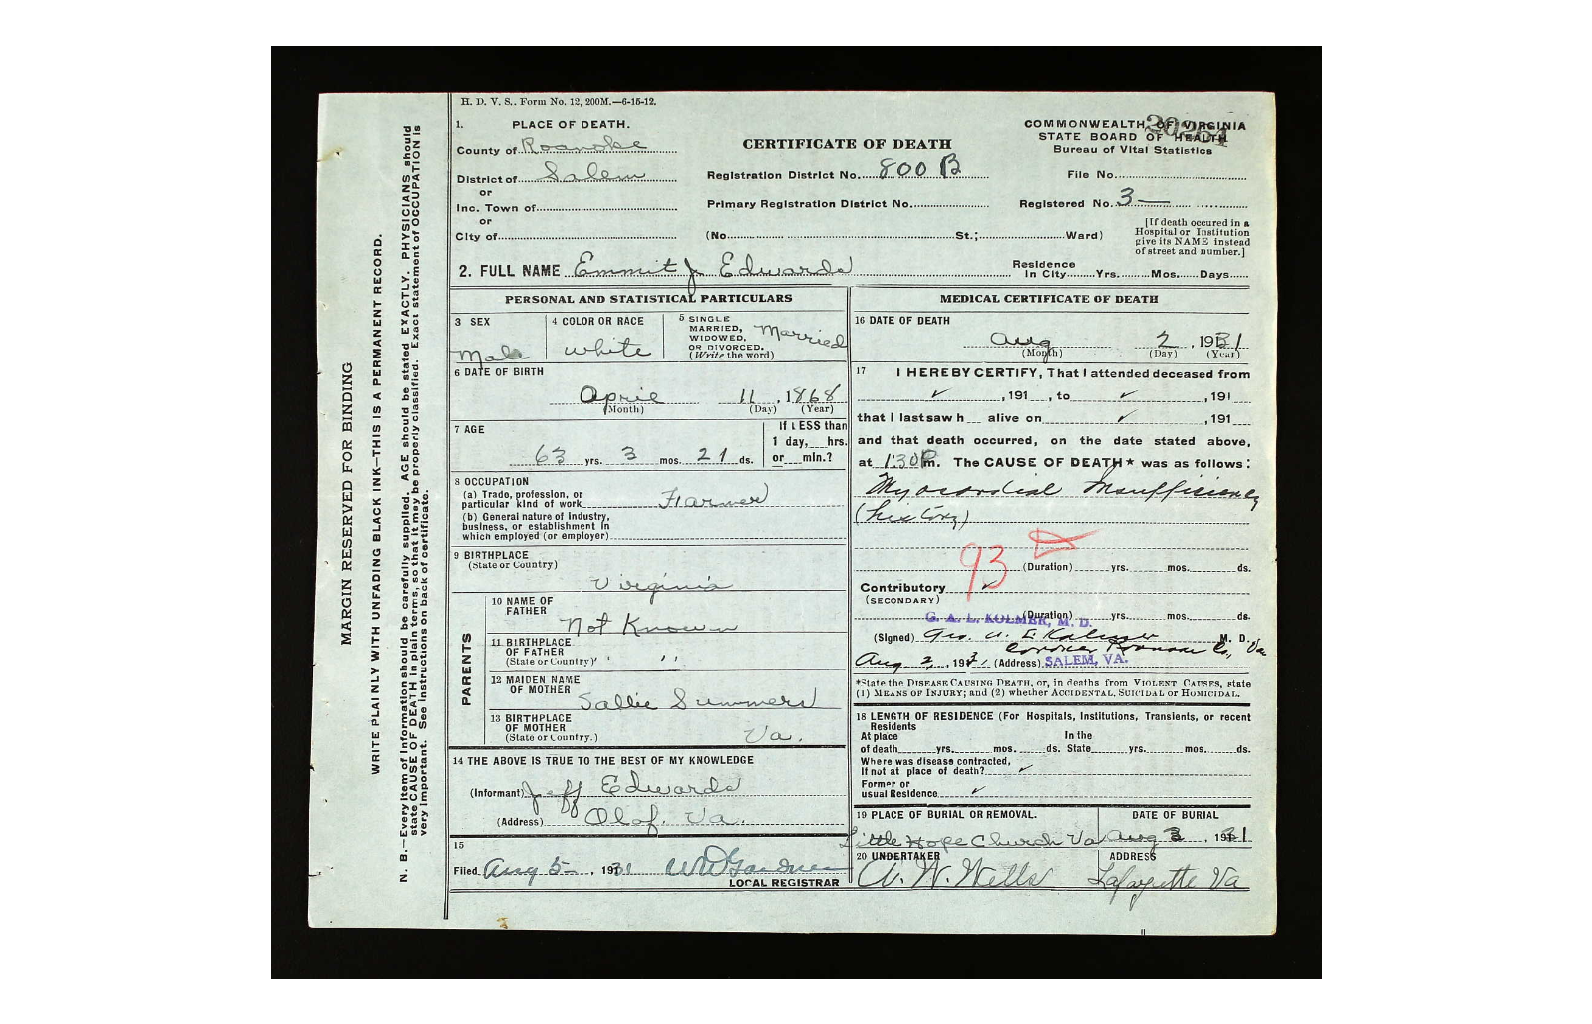 H. D. V. S.. Form No. 12, 200M.—6-15-12.
1. PLACE OF DEATH.
County of Roanoke
District of Salem
or
Inc. Town of
or
City of
CERTIFICATE OF DEATH
Registration District No. 800 B
Primary Registration District No.
(No. St.; Ward)
COMMONWEALTH OF VIRGINIA
STATE BOARD OF HEALTH
Bureau of Vital Statistics
File No.
Registered No. 3—
[If death occured in a
Hospital or Institution
give its NAME instead
of street and number.]
2. FULL NAME Emmit J Edwards
Residence
In City Yrs. Mos. Days
PERSONAL AND STATISTICAL PARTICULARS
3 SEX
Male
4 COLOR OR RACE
White
5 SINGLE
MARRIED,
WIDOWED,
OR DIVORCED.
(Write the word)
Married
6 DATE OF BIRTH
April 11, 1868
(Month) (Day) (Year)
7 AGE
63 yrs. 3 mos. 21 ds.
If LESS than
1 day, hrs.
or min.?
8 OCCUPATION
(a) Trade, profession, or
particular kind of work Farmer
(b) General nature of industry,
business, or establishment in
which employed (or employer)
9 BIRTHPLACE
(State or Country)
Virginia
PARENTS
10 NAME OF
FATHER
Not Known
11 BIRTHPLACE
OF FATHER
(State or Country) " "
12 MAIDEN NAME
OF MOTHER
Sallie Summers
13 BIRTHPLACE
OF MOTHER
(State or Country.)
Va.
14 THE ABOVE IS TRUE TO THE BEST OF MY KNOWLEDGE
(Informant) Jeff Edwards
(Address) Olof. Va.
15
Filed Aug 5, 1931
LOCAL REGISTRAR
MEDICAL CERTIFICATE OF DEATH
16 DATE OF DEATH
Aug 2, 1931
(Month) (Day) (Year)
17 I HEREBY CERTIFY, That I attended deceased from
, 191 , to , 191
that I last saw h alive on , 191
and that death occurred, on the date stated above,
at 1:30 P m. The CAUSE OF DEATH* was as follows:
Myocardial Insufficiency
(history)
93
(Duration) yrs. mos. ds.
Contributory
(SECONDARY)
(Duration) yrs. mos. ds.
G. A. L. KOLMER, M. D.
(Signed) Geo. A. L Kolmer M. D.
Coroner Roanoke Co., Va
Aug 2, 1931 (Address) SALEM, VA.
*State the DISEASE CAUSING DEATH, or, in deaths from VIOLENT CAUSES, state
(1) MEANS OF INJURY; and (2) whether ACCIDENTAL, SUICIDAL or HOMICIDAL.
18 LENGTH OF RESIDENCE (For Hospitals, Institutions, Transients, or recent
Residents
At place In the
of death yrs. mos. ds. State yrs. mos. ds.
Where was disease contracted,
If not at place of death?
Former or
usual Residence
19 PLACE OF BURIAL OR REMOVAL.
Little Hope Church Va
DATE OF BURIAL
Aug 3, 1931
20 UNDERTAKER
A. W. Wells
ADDRESS
Lafayette Va
MARGIN RESERVED FOR BINDING
WRITE PLAINLY WITH UNFADING BLACK INK—THIS IS A PERMANENT RECORD.
N. B.—Every item of information should be carefully supplied. AGE should be stated EXACTLY. PHYSICIANS should
state CAUSE OF DEATH in plain terms, so that it may be properly classified. Exact statement of OCCUPATION is
very important. See instructions on back of certificate.